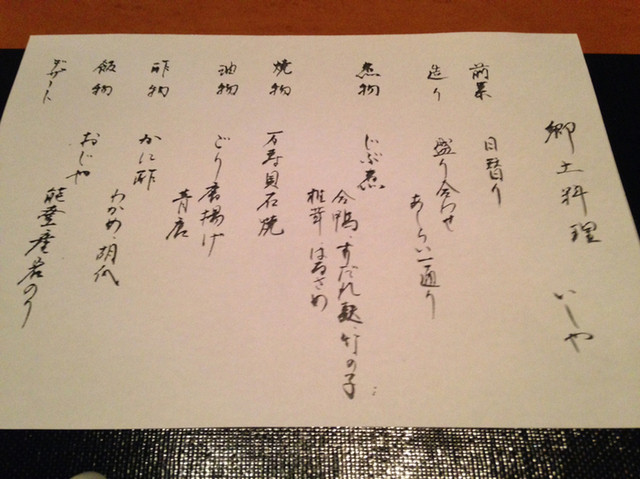 郷土料理 いしや
前菜 日替り
造り 盛り合わせ
あしらい一通り
煮物 じぶ煮
合鴨・すだれ麩・竹の子
椎茸・はるさめ
焼物 万寿貝石焼
油物 ごり唐揚げ
青唐
酢物 かに酢
わかめ・胡瓜
飯物 おじや
能登産岩のり
デザート